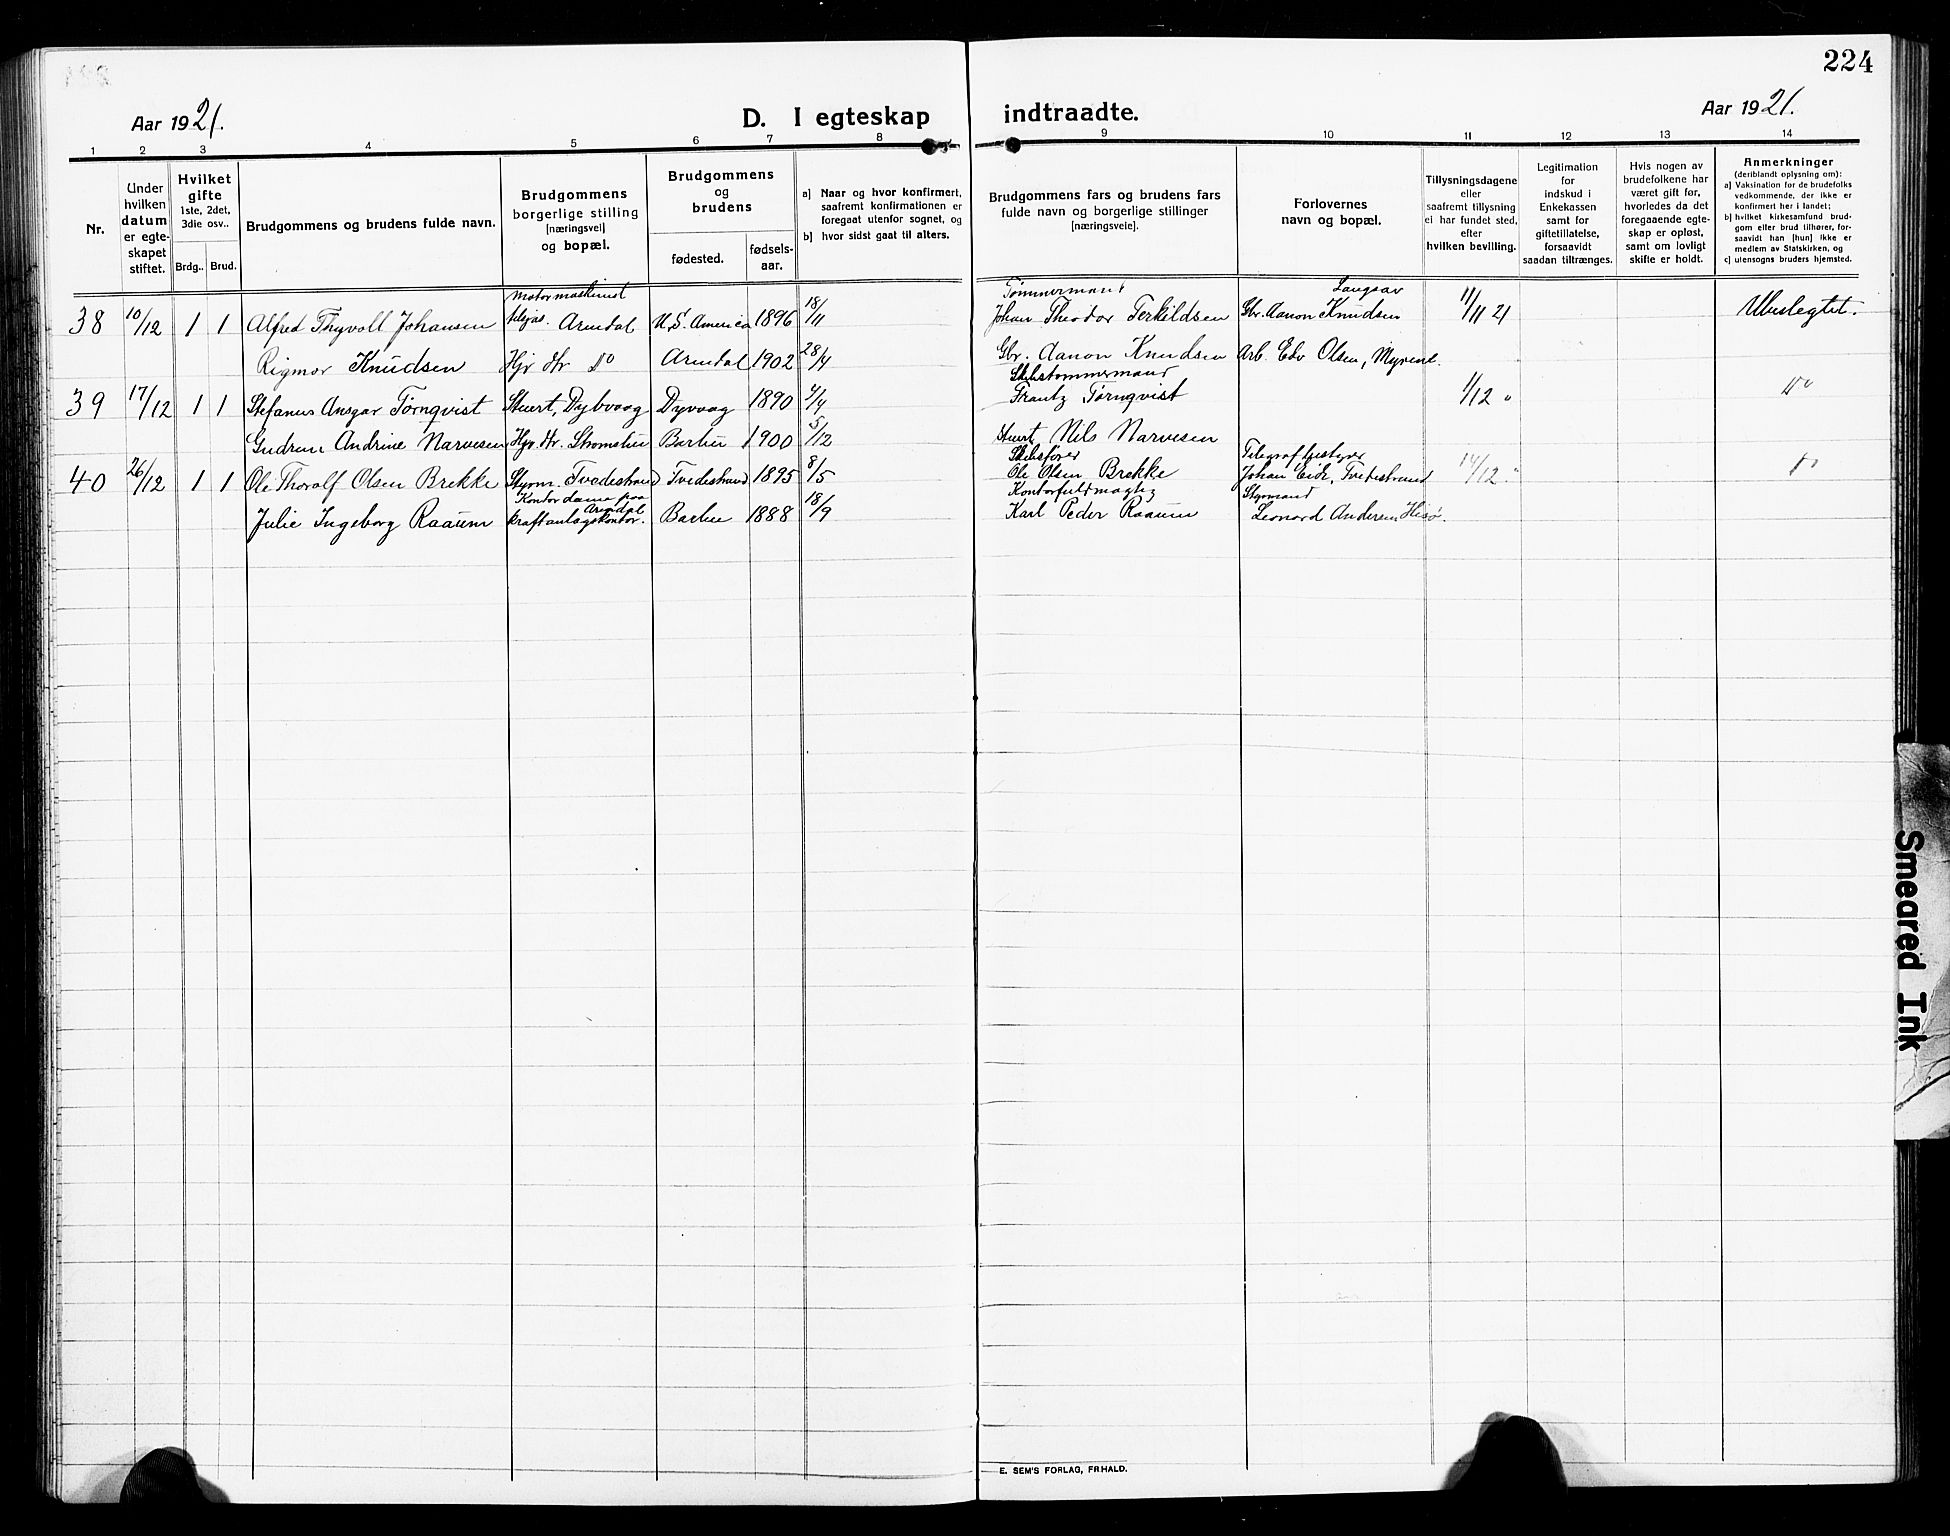 224
Aar 1921.
D. I egteskap indtraadte.
Aar 1921.
1 2 3 4 5 6 7 8 9 10 11 12 13 14
Nr.
Under hvilken datum er egte-skapet stiftet.
Hvilket gifte 1ste, 2det, 3die osv..
Brdg.. Brud.
Brudgommens og brudens fulde navn.
Brudgommens borgerlige stilling [næringsvei] og bopæl.
Brudgommens og brudens
fødested.
fødsels-aar.
a) Naar og hvor konfirmert, saafremt konfirmationen er foregaat utenfor sognet, og
b) hvor sidst gaat til alters.
Brudgommens fars og brudens fars fulde navn og borgerlige stillinger [næringsveie].
Forlovernes navn og bopæl.
Tillysningsdagene eller saafremt tillysning ei har fundet sted, efter hvilken bevilling.
Legitimation for indskud i Enkekassen samt for giftetillatelse, forsaavidt saadan tiltrænges.
Hvis nogen av brudefolkene har været gift før, hvorledes da det foregaaende egte-skap er opløst, samt om lovligt skifte er holdt.
Anmerkninger (deriblandt oplysning om):
a) Vaksination for de brudefolks vedkommende, der ikke er konfirmert her i landet;
b) hvilket kirkesamfund brud-gom eller brud tilhører, for-saavidt han [hun] ikke er medlem av Statskirken, og
c) utensogns bruders hjemsted.
Motormaskinist Tømmermand Langsæv
38 10/12 1 1 Alfred Thyvoll Johansen Arendal U.S. America 1896 18/11 Johan Theodor Terkildsen Gbr. Aanon Knudsen 11/11 21 Ubeslegtet.
Rigmor Knudsen Hjv. Hr Do Arendal 1902 28/4 Gbr. Aanon Knudsen Arb. Edv Olsen, Myrene
Skibstømmermand
39 17/12 1 1 Stefanus Ansgar Tørnqvist Stuert, Dybvaag Dyvaag 1890 2/4 Frantz Tørnqvist 1/12 " Do
Gudrun Andrine Narvesen Hjv. Hr. Strømsbu Barbu 1900 5/12 Stuert Nils Narvesen
Skibsfører Telegrafbestyrer
40 26/12 1 1 Ole Thoralf Olsen Brekke Styrm. Tvedestrand Tvedestrand 1895 8/5 Ole Olsen Brekke Johan Eik, Tvedestrand 14/12 " Do
Kontordame paa Arendal Kontorfuldmægtig Styrmand
Julie Ingeborg Raaum kraftanlægskontor. Barbu 1888 18/9 Karl Peder Raaum Leonard Andersen Hisø.
E. SEM'S FORLAG, FRHALD.
Smeared Ink